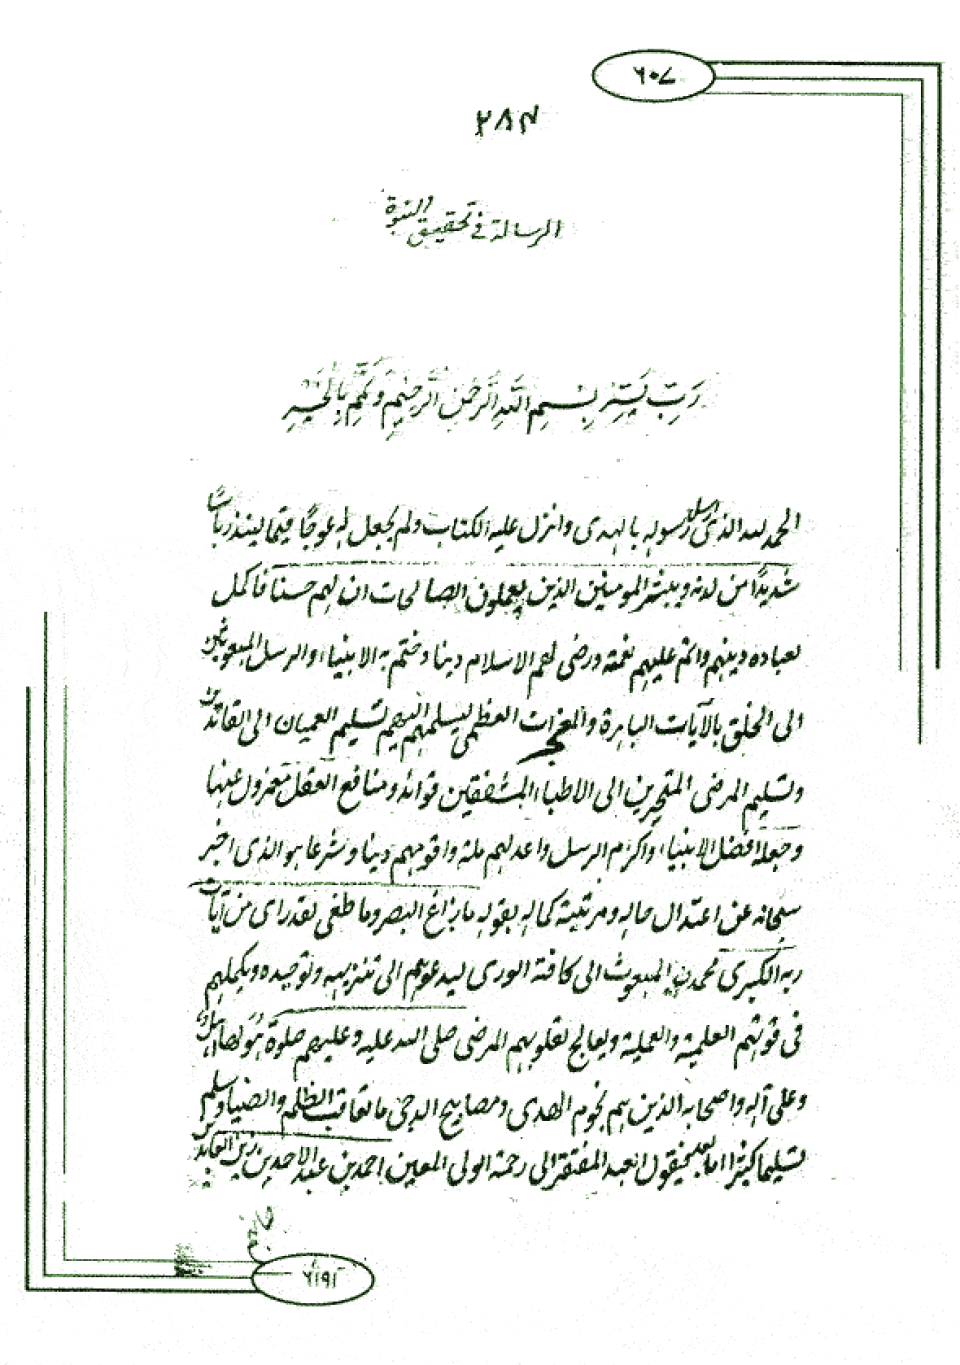 ٦٠٧
٢٨٤
الرسالة في تحقيق النبوة
رب يسر بسم الله الرحمن الرحيم وتمم بالخير
الحمد لله الذى ارسل رسوله بالهدى وانزل عليه الكتاب ولم يجعل له عوجًا قيما لينذر بأسًا
شديدًا من لدنه ويبشر المومنين الذين يعملون الصالحات ان لهم حسنا فاكمل
لعباده دينهم واتم عليهم نعمته ورضى لهم الاسلام دينا وختم به الانبياء والرسل المبعوثين
الى الخلق بالآيات الباهرة والمعجزات العظمى ليسلمهم اليهم تسليم العميان الى القائدين
وتسليم المرضى المتحيرين الى الاطباء المشفقين فوائد ومنافع العقل معزول عنها
وجعله افضل الانبياء واكرم الرسل واعدلهم ملة واقومهم دينا وشرعا هو الذى اخبر
سبحانه عن اعتدال حاله ومرتبة كماله بقوله ما زاغ البصر وما طغى لقد راى من آيات
ربه الكبرى محمدن المبعوث الى كافة الورى ليدعوهم الى تنزيهه وتوحيده ويكملهم
فى قوتهم العلمية والعملية ويعالج لقلوبهم المرضى صلى الله عليه وعليهم صلوة هو لها اهل
وعلى آله واصحابه الذين هم نجوم الهدى ومصابيح الدجى ما تعاقب الظلم والضيا وسلم
تسليما كثيرا اما بعد فيقول العبد المفتقر الى رحمة الولى المعين احمد بن عبد الاحد بن زين العابدين